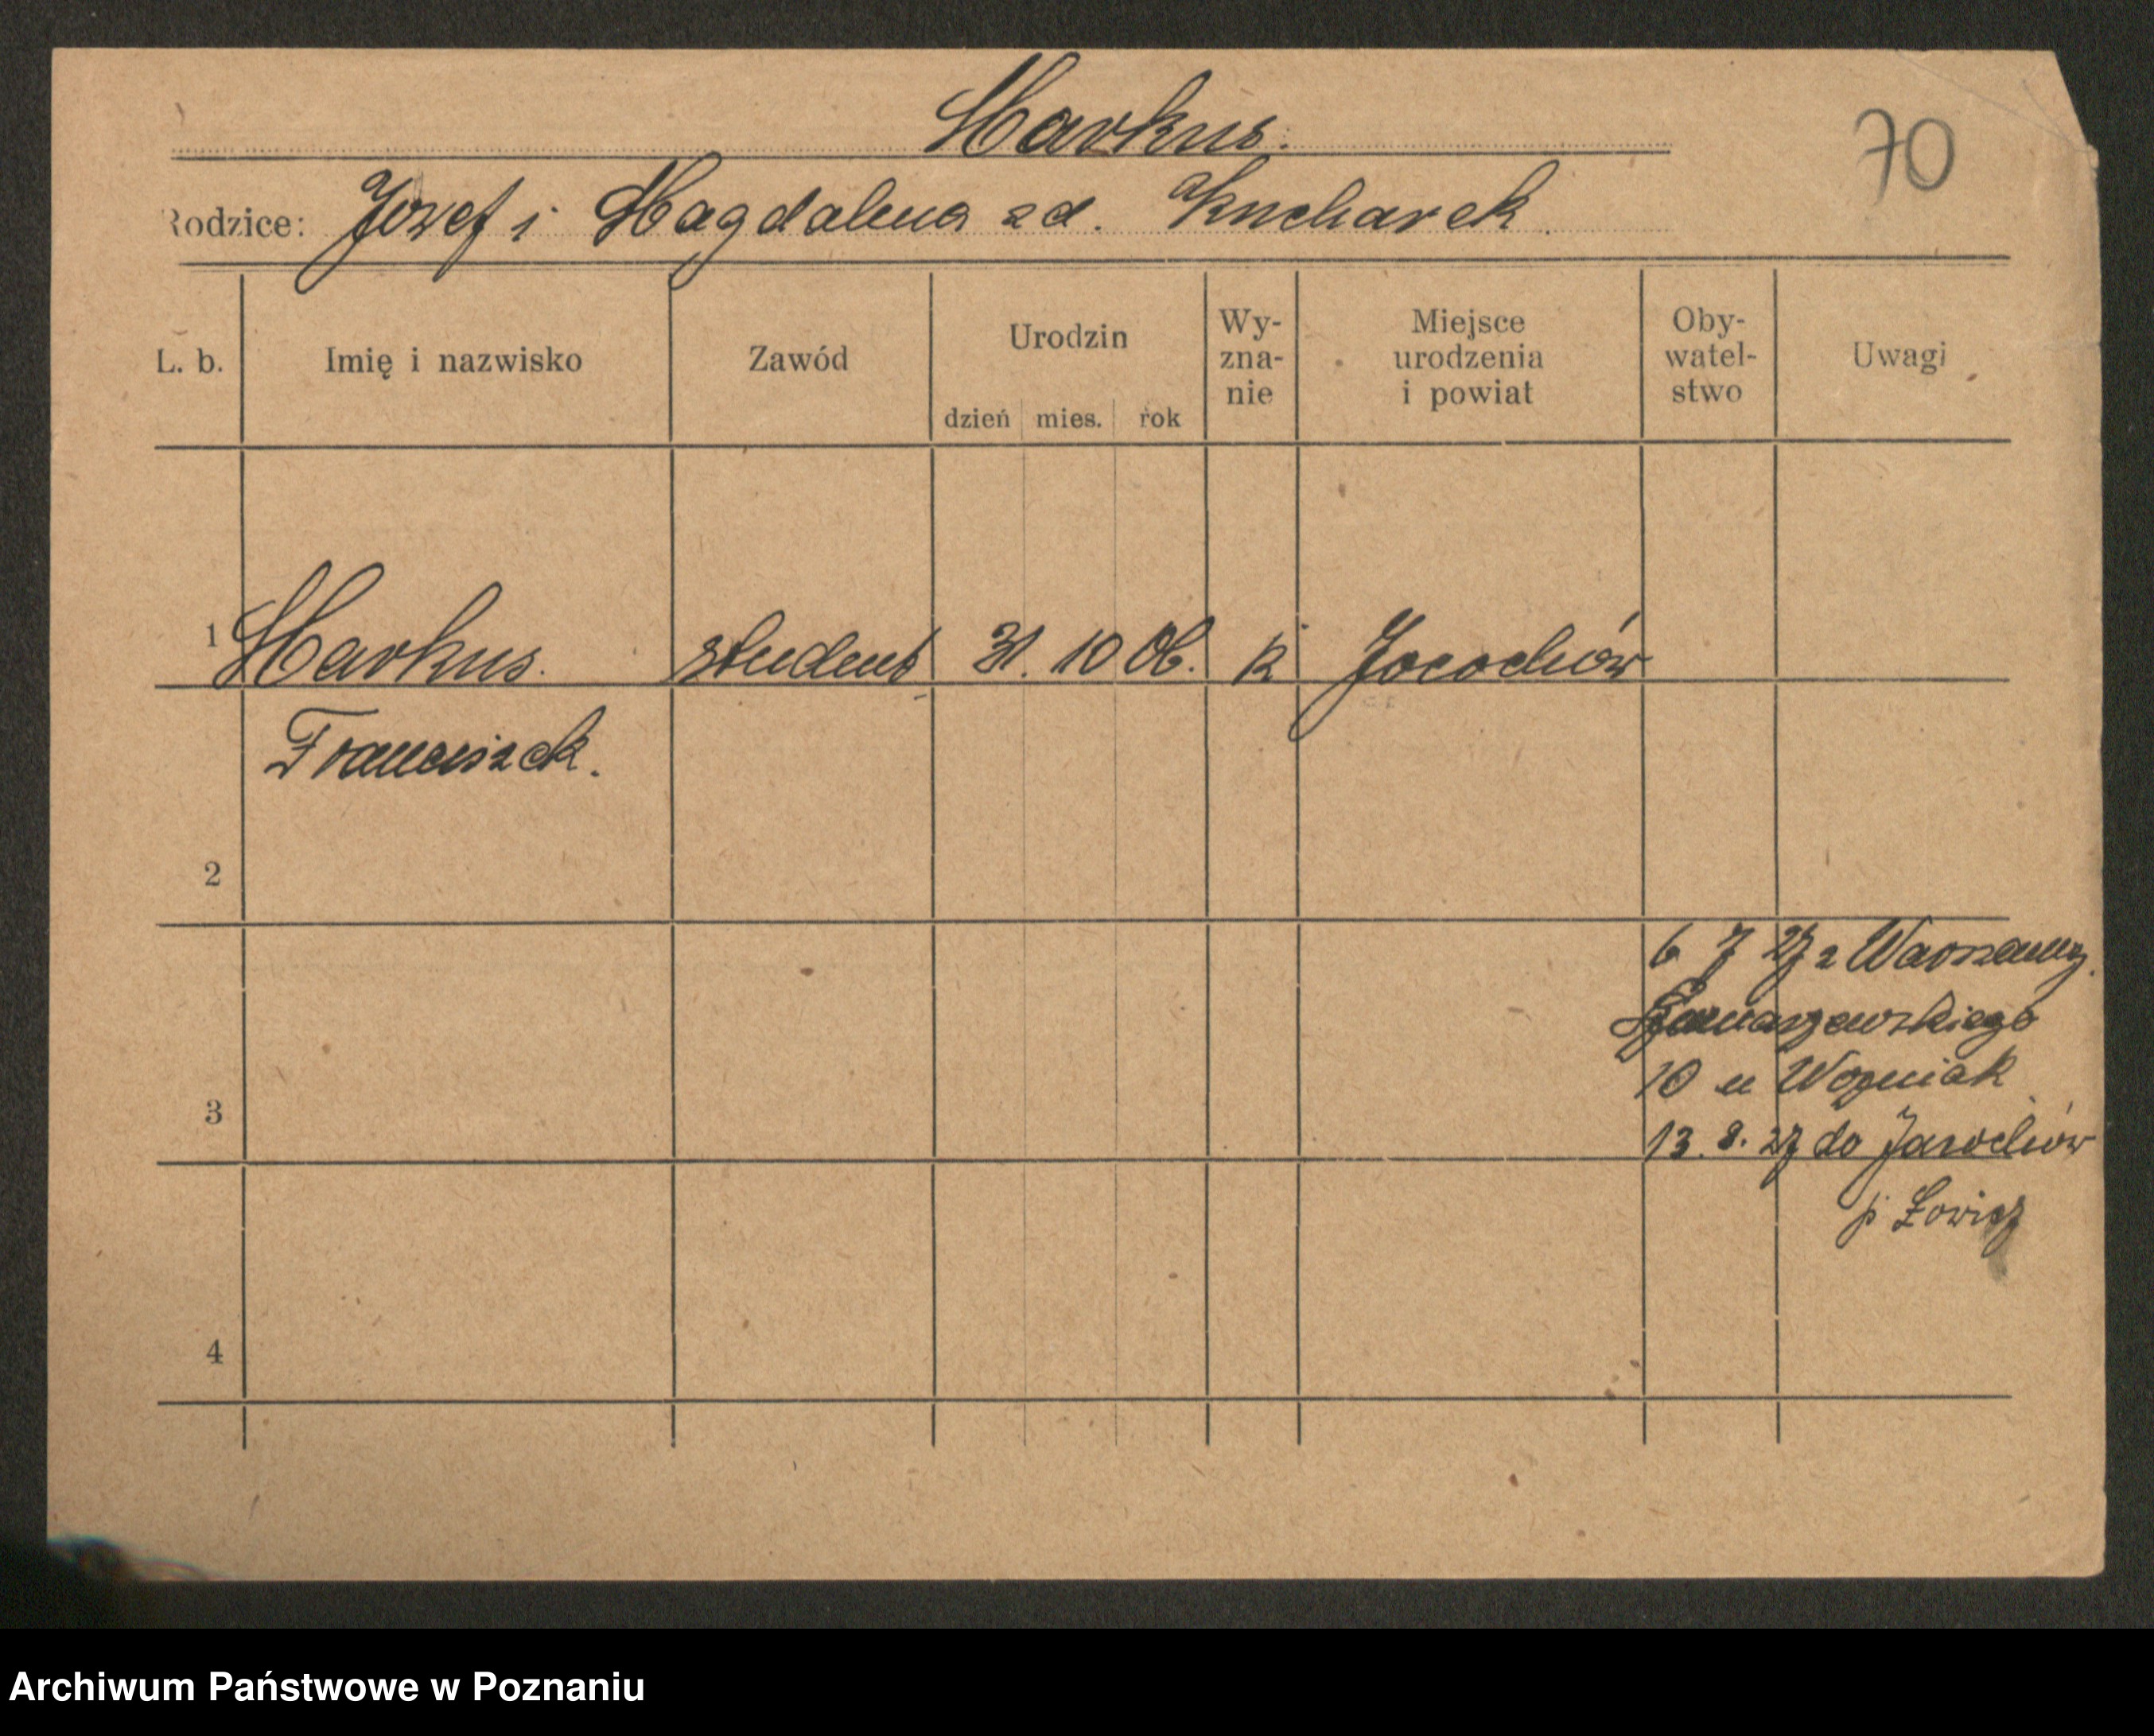 Markus.
70
Rodzice: Józef i Magdalena zd. Kucharek.
L. b. Imię i nazwisko Zawód Urodzin dzień mies. rok Wy-zna-nie Miejsce urodzenia i powiat Oby-watel-stwo Uwagi
1 Markus. student 31. 10 06. k Jorochów
Franciszek.
2
6 7 27 z Warszawy.
10 u Wozniak
3
13. 8. 27 do Jarochów
p Łowicz
4
Archiwum Państwowe w Poznaniu